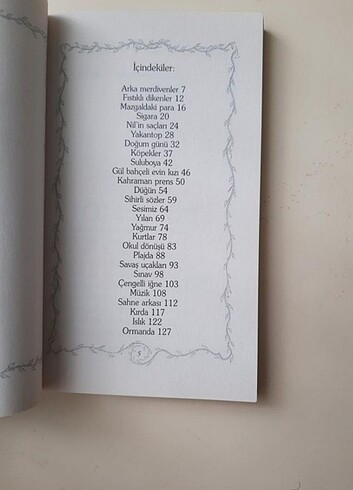 İçindekiler:
Arka merdivenler 7
Fıstıklı dikenler 12
Mazgaldaki para 16
Sigara 20
Nil'in saçları 24
Yakantop 28
Doğum günü 32
Köpekler 37
Suluboya 42
Gül bahçeli evin kızı 46
Kahraman prens 50
Düğün 54
Sihirli sözler 59
Sesimiz 64
Yılan 69
Yağmur 74
Kurtlar 78
Okul dönüşü 83
Plajda 88
Savaş uçakları 93
Sınav 98
Çengelli iğne 103
Müzik 108
Sahne arkası 112
Kırda 117
Islık 122
Ormanda 127
5